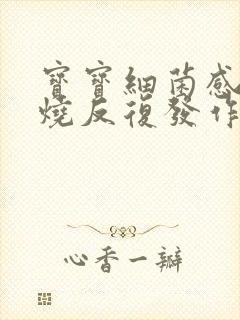 寶寶細菌感
燒反復發作
心香一瓣